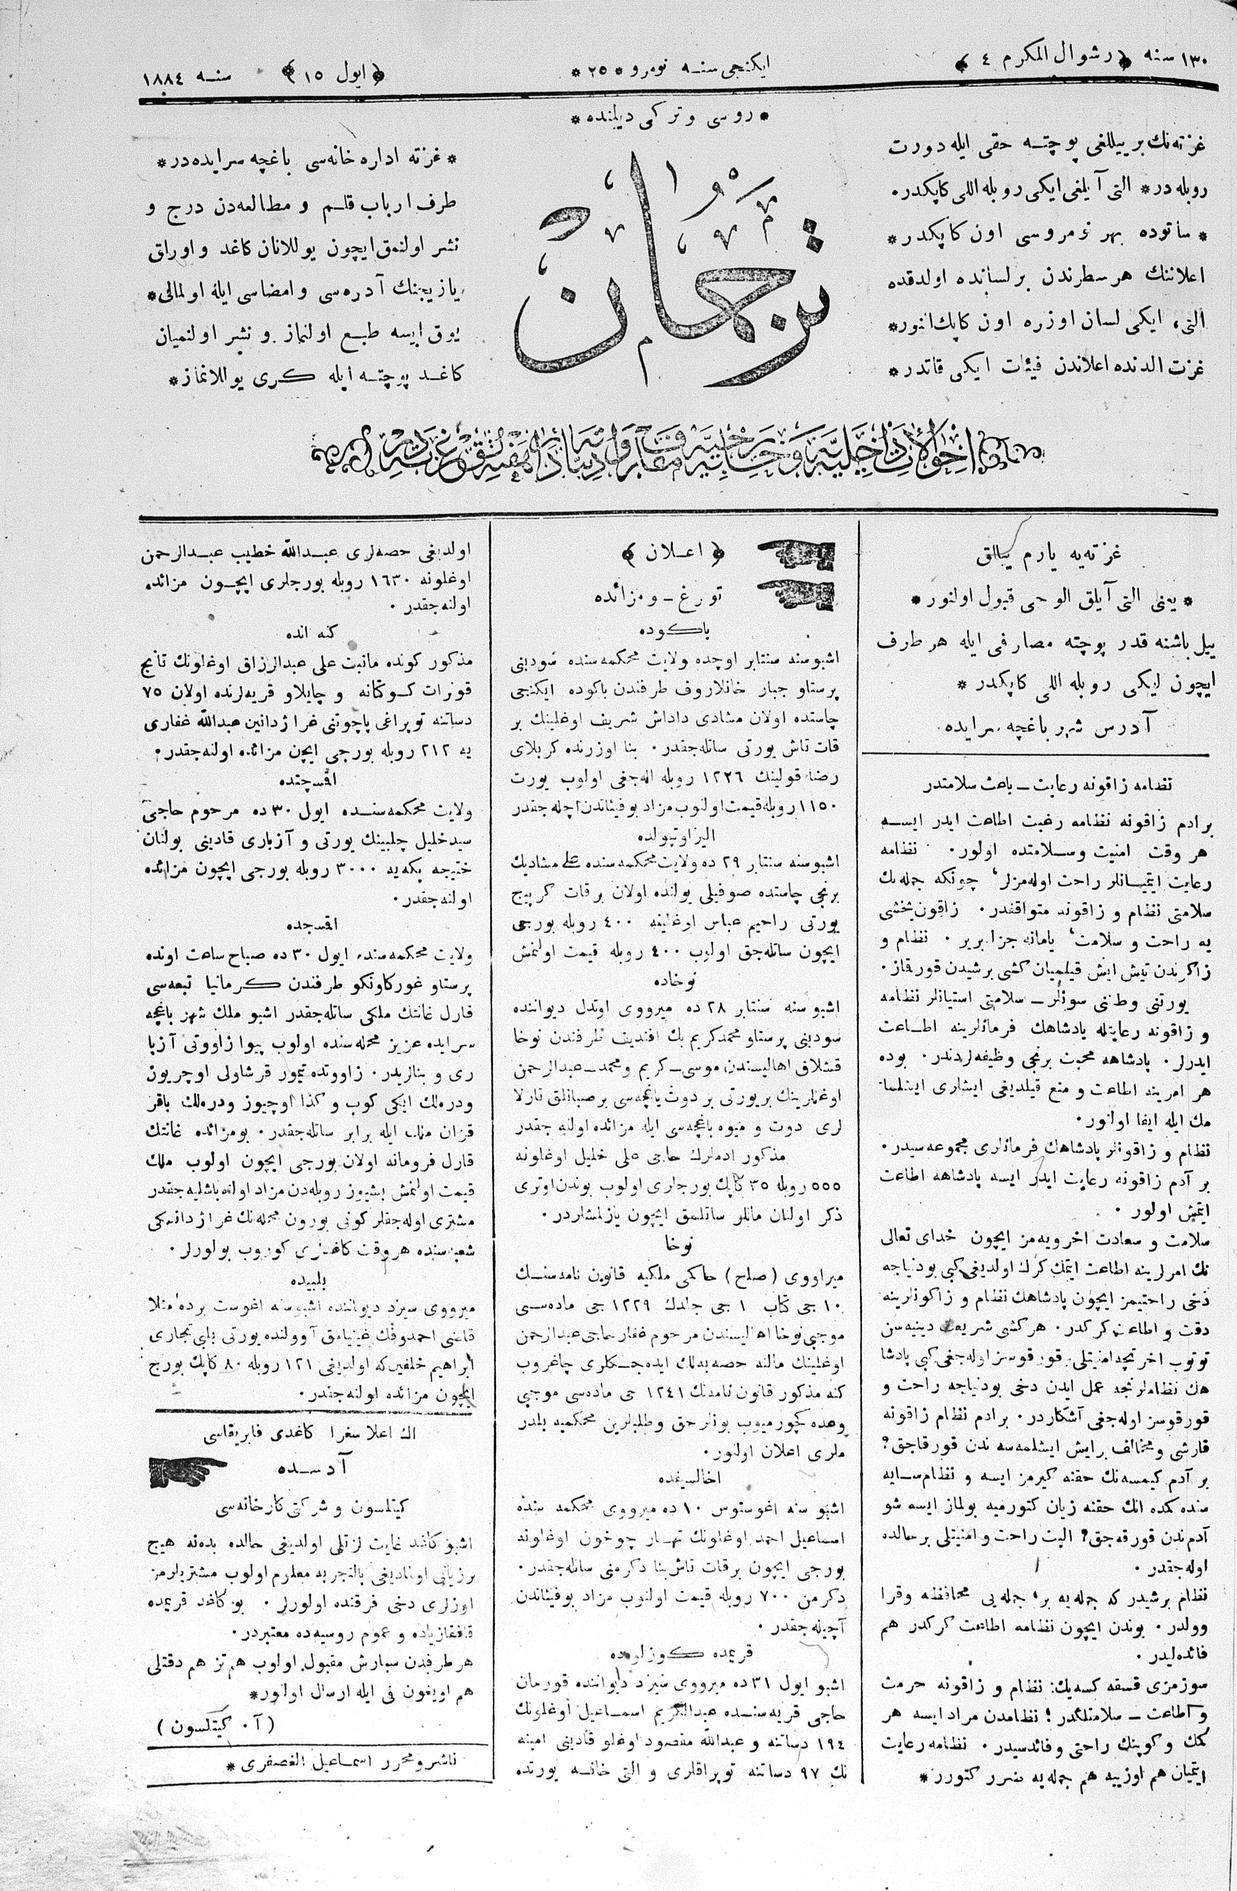 ١٣٠ سنه ﴿ رشوال المكرم ٤ ﴾
ایكنجی سنه نومرو * ٢٥ *
﴿ ایول ١٥ ﴾ سنه ١٨٨٤
* روسی و تركی دیلنده *
غزته‌نك بر ییللغی پوچته حقی ایله دورت
روبله در * التی آیلغی ایكی روبله اللی كاپكدر.
* ساتوده بهر نومروسی اون كاپكدر *
اعلاننك هر سطرندن بر لسانده اولدقده
التی، ایكی لسان اوزره اون كاپك النور *
غزت الدنده اعلاندن فیئات ایكی قاتدر *
ترجمان
١٣٠٠
* غزته اداره خانه‌سی باغچه سرایده‌در *
طرف ارباب قلم و مطالعه‌دن درج و
نشر اولنمق ایچون یوللانان كاغد و اوراق
یازیجنك آدره‌سی و امضاسی ایله اولمالی *
یوق ایسه طبع اولنماز و نشر اولنمیان
كاغد پوچته ایله كری یوللانماز *
غزته‌یه یارم ییللق
* یعنی التی آیلق الوجی قبول اولنور *
ییل باشنه قدر پوچته مصارفی ایله هر طرف
ایچون ایكی روبله اللی كاپكدر *
آدرس شهر باغچه سرایده
نظامه زاقونه رعایت ــ باعث سلامتدر
بر ادم زاقونه نظامه رغبت اطاعت ایدر ایسه
هر وقت امنیت وسلامتده اولور. نظامه
رعایت ایتمیانلر راحت اوله‌مزلر، چونكه جمله‌نك
سلامتی نظام و زاقونه متواقفدر. زاقون یخشی
یه راحت و سلامت، یامانه جزا بریر. نظام و
زاكوندن تیش ایش قیلمیان كشی بر شیدن قورقماز.
یورتنی وطننی سوئلر ــ سلامتی استیانلر نظامه
و زاقونه رعایتله پادشاهك فرمانلرینه اطاعت
ایدرلر. پادشاهه محبت برنجی وظیفه‌لریدر. بوده
هر امرینه اطاعت و منع قیلدیغی ایشلری ایشلمه
مك ایله ایفا اولنور.
نظام و زاقونلر پادشاهك فرمانلری مجموعه‌سیدر.
بر آدم زاقونه رعایت ایدر ایسه پادشاهه اطاعت
ایتمش اولور.
سلامت و سعادت اخرویه‌مز ایچون خدای تعالی
نك امرلرینه اطاعت ایتمك كرك اولدیغی كبی بو دنیاجه
دخی راحتیمز ایچون پادشاهك نظام و زاكونلرینه
دقت و اطاعت كركدر. هر كشی شریعت دینیه‌سن
توتوب اخرتجه امنیتلی، قورقوسز اوله‌جغی كبی پادشا
هك نظاملرنجه عمل ایدن دخی بو دنیاجه راحت و
قورقوسز اوله‌جغی آشكاردر. بر ادم نظام زاقونه
قارشی و مخالف بر ایش ایشلمه‌سه ندن قورقاجق؟
بر آدم كیمسه‌نك حقنه كیرمز ایسه و نظام سایه
سنده كمده انك حقنه زیان كتورمیه بولماز ایسه شو
آدم ندن قورقه‌جق؟ البت راحت و امنیتلی بر حالده
اوله‌جقدر.
نظام بر شیدر كه جمله‌یه بر، جمله‌یی محافظه وقرا
وولدر. بوندن ایچون نظامه اطاعت كركدر هم
فائده‌لیدر.
سوزمزی قسقه كسه‌یك: نظام و زاقونه حرمت
و اطاعت ــ سلامتلكدر؛ نظامدن مراد ایسه هر
كمك و كوپنك راحتی و فائدسیدر. نظامه رعایت
ایتمیان هم اوزینه هم جمله‌یه ضرر كتورر *
﴿ اعلان ﴾
تورغ ــ و مزائده
باكوده
اشبو سنه سنتابر اوچده ولایت محكمه‌سنده سودینی
پرستاو جبار خانلاروف طرفندن باكوده ایكنجی
چاستده اولان مشادی داداش شریف اوغلینك بر
قات تاش یورتی ساتله‌جقدر. بنا اوزرنده كربلای
رضا قولینك ١٢٢٦ روبله اله‌جغی اولوب یورت
١١٥٠ روبله قیمت اولنوب مزاد بو فیئاتدن اچله‌جقدر
الیزاوتپولده
اشبو سنه سنتابر ٢٩ ده ولایت محكمه‌سنده علی مشادیك
برنجی چاستده صوفیلی یولنده اولان بر قات كرپیج
یورتی راحیم عباس اوغلینه ٤٠٠ روبله بورجی
ایچون ساتله‌جق اولوب ٤٠٠ روبله قیمت اولنمش
نوخاده
اشبو سنه سنتابر ٢٨ ده میرووی اوتدل دیواننده
سودینی پرستاو محمد كریم بك افندیف طرفندن نوخا
قشلاق اهالیسندن موسی ــ كریم و محمد ــ عبدالرحمن
اوغلارینك بر یورتی بر دوت باغچه‌سی بر صبانلق تارلا
لری دوت و میوه باغچه‌سی ایله مزائده اولنه جقدر
مذكور ادملرك حاجی علی خلیل اوغلونه
٥٥٥ روبله ٣٥ كاپك بورجلری اولوب بوندن اوتری
ذكر اولنان ماللر ساتلمق ایچون یازلمشلردر.
نوخا
میراووی (صلح) حاكمی ملكیه قانون نامه سنك
١٠ جی كتاب ١ جی جلدك ١٢٢٩ جی ماده‌سی
موجبی نوخا اهالیسندن مرحوم غفار حاجی عبدالرحمن
اوغلینك مالنه حصه‌یه‌لك ایده‌جكلری چاغروب
كنه مذكور قانون نامه‌نك ١٢٤١ جی ماده‌سی موجبی
وعده كچورمیوب بونلر حق وطلبلرین محكمه‌یه بلدر
ملری اعلان اولنور.
اخالسیغده
اشبو سنه اغوستوس ١٠ ده میرووی محكمه سنده
اسماعیل احمد اوغلونك تهمار چوخون اوغلونه
بورجی ایچون بر قات تاش بنا دكرمنی ساتله‌جقدر.
دكرمن ٧٠٠ روبله قیمت اولنوب مزاد بو فیئاتدن
آچیله‌جقدر.
قریمده كوزلوده
اشبو ایول ٣١ ده میرووی سیزد دیواننده قورمان
حاجی قریه‌سنده عبدالكریم اسماعیل اوغلونك
١٩٤ دساتنه و عبدالله مقصود اوغلو قادینی امینه
نك ٩٧ دساتنه توپراقلری و التی خانه یورتده
اولدیغی حصه‌لری عبدالله خطیب عبدالرحمن
اوغلونه ١٦٣٠ روبله بورجلری ایچون مزائده
اولنه جقدر.
كنه انده
مذكور كونده مانیت علی عبدالرزاق اوغلونك تابع
قونرات كوكتانه و چایلاو قریه‌لرنده اولان ٧٥
دساتنه توپراغی پاچوتنی غراژدانین عبدالله غفاری
یه ٢١٢ روبله بورجی ایچن مزائده اولنه جقدر.
اقمسجدده
ولایت محكمه سنده ایول ٣٠ ده مرحوم حاجی
سید خلیل چلبینك یورتی و آزباری قادینی بولنان
ختیجه بكه‌یه ٣٠٠٠ روبله بورجی ایچون مزائده
اولنه جقدر.
اقمسجده
ولایت محكمه سنده ایول ٣٠ ده صباح ساعت اونده
پرستاو غوركاونكو طرفندن كرمانیا تبعه‌سی
قارل غانتك ملكی ساتله‌جقدر اشبو ملك شهر باغچه
سرایده عزیز محله‌سنده اولوب پیوا زاووتی آزبا
ری و بنالریدر. زاووتده تیمور قرشاولی اوچریون
ودره‌لك ایكی كوب و كذا اوچیوز ودره‌لك باقر
قزان ملك ایله برابر ساتله‌جقدر. بو مزائده غانتك
قارل فرومانه اولان بورجی ایچون اولوب ملك
قیمت اولنمش بشیوز روبله‌دن مزاد اولنه باشلیه‌جقدر
مشتری اوله‌جقلر كونی بورون محكمه‌نك غراژدانسكی
شعبه‌سنده هر وقت كاغدلری كوروب بولورلر.
بلبیده
میرووی سیزد دیواننده اشبو سنه اغوست برده ملا
قاضی احمدوفك غینیامق آوولنده یورتی بابی تجاری
ابراهیم خلفین‌كه اولدیغی ١٢١ روبله ٨٠ كاپك بورج
ایچون مزائده اولنه جقدر.
اك اعلا سغرا كاغدی فابریقاسی
آدسده
كیتلسون و شركتی كارخانه‌سی
اشبو كاغد غایت لزتلی اولدیغی حالده بدنه هیچ
بر زیانی اولمادیغی بالتجربه معلوم اولوب مشتریلرمز
اوزلری دخی فرقنده اولورلر. بو كاغد قریمده
قافقازیاده و عموم روسیه‌ده معتبردر.
هر طرفدن سپارش مقبول اولوب هم تز هم دقتلی
هم اویغون فی ایله ارسال اولنور *
(آ. كیتلسون)
ناشر و محرر اسماعیل الغصفری *